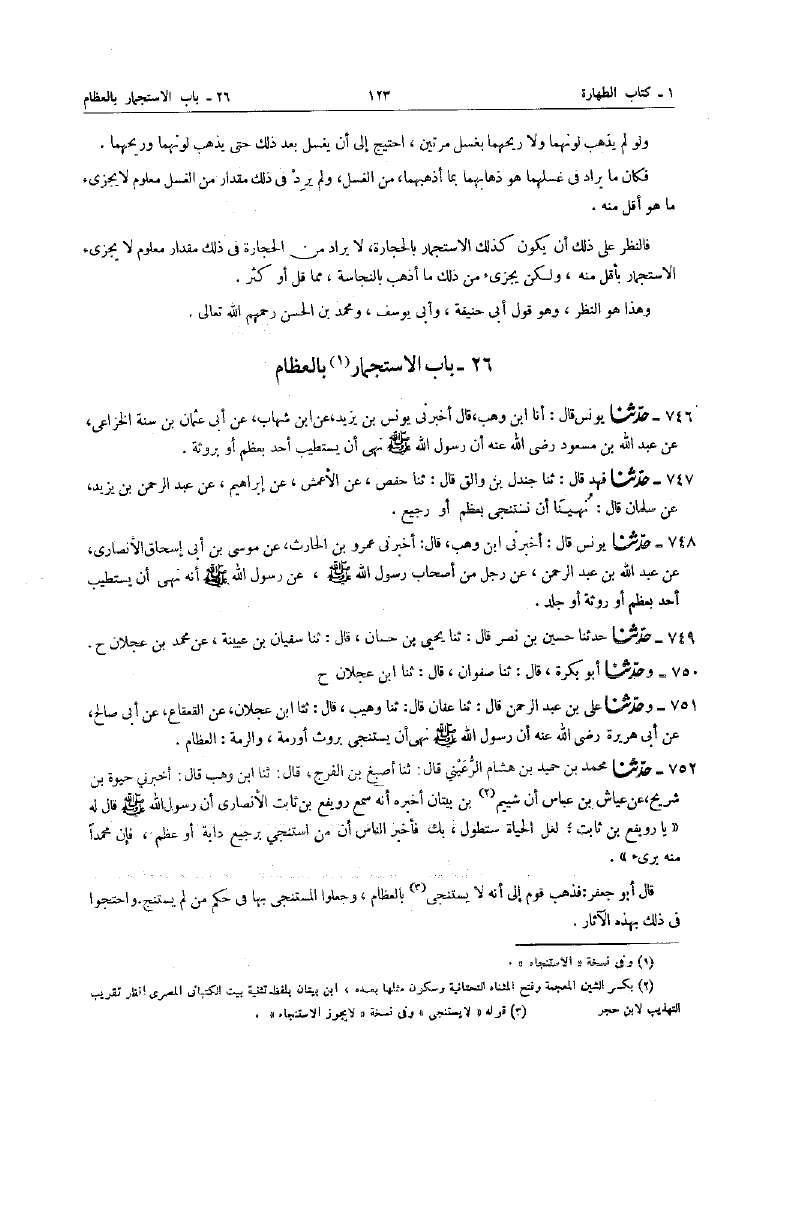 ١ ـ كتاب الطهارة ١٢٣ ٢٦ ـ باب الاستجمار بالعظام
ولو لم يذهب لونهما ولا ريحهما بغسل مرتين ، احتيج إلى أن يغسل بعد ذلك حتى يذهب لونهما وريحهما .
فكان ما يراد فى غسلهما هو ذهابهما بما أذهبهما، من الغسل، ولم يردْ فى ذلك مقدار من الغسل معلوم لايجزىء
ما هو أقل منه .
فالنظر على ذلك أن يكون كذلك الاستجمار بالحجارة، لا يراد من الحجارة فى ذلك مقدار معلوم لا يجزىء
الاستجمار بأقل منه ، ولكن يجزىء من ذلك ما أذهب بالنجاسة ، مما قل أو كثر .
وهذا هو النظر ، وهو قول أبى حنيفة ، وأبى يوسف ، ومحمد بن الحسن رحمهم الله تعالى .
٢٦ ـ باب الاستجمار(١) بالعظام
٧٤٦ ـ حدّثنا يونس قال : أنا ابن وهب،قال أخبرنى يونس بن يزيد،عن ابن شهاب، عن أبى عثمان بن سنة الخزاعى،
عن عبد الله بن مسعود رضى الله عنه أن رسول الله ﷺ نهى أن يستطيب أحد بعظم أو بروثة .
٧٤٧ ـ حدّثنا فهد قال : ثنا جندل بن والق قال : ثنا حفص ، عن الأعمش ، عن إبراهيم ، عن عبد الرحمن بن يزيد،
عن سلمان قال : نُهـيـنا أن نستنجى بعظم أو رجيع .
٧٤٨ ـ حدّثنا يونس قال : أخبرنى ابن وهب، قال: أخبرنى عمرو بن الحارث، عن موسى بن أبى إسحاق الأنصارى،
عن عبد الله بن عبد الرحمن ، عن رجل من أصحاب رسول الله ﷺ ، عن رسول الله ﷺ أنه نهى أن يستطيب
أحد بعظم أو روثة أو جلد .
٧٤٩ ـ حدّثنا حدثنا حسين بن نصر قال : ثنا يحيى بن حسان ، قال : ثنا سفيان بن عيينة ، عن محمد بن عجلان ح .
٧٥٠ ـ وحدّثنا أبو بكرة ، قال : ثنا صفوان ، قال : ثنا ابن عجلان ح
٧٥١ ـ وحدّثنا على بن عبد الرحمن قال : ثنا عفان قال: ثنا وهيب ، قال : ثنا ابن عجلان، عن القعقاع، عن أبى صالح،
عن أبى هريرة رضى الله عنه أن رسول الله ﷺ نهى أن يستنجى بروث أورمة ، والرمة : العظام .
٧٥٢ ـ حدّثنا محمد بن حميد بن هشام الرُعَيْني قال: ثنا أصبغ بن الفرج، قال: ثنا ابن وهب قال: أخبرني حيوة بن
شريح،عن عياش بن عباس أن شييم(٢) بن بيتان أخبره أنه سمع رويفع بن ثابت الأنصارى أن رسول الله ﷺ قال له
« يا رويفع بن ثابت ؛ لعل الحياة ستطول ، بك فأخبر الناس أن من استنجي برجيع دابة أو عظم ، فإن محمداً
منه برىء » .
قال أبو جعفر:فذهب قوم إلى أنه لا يستنجى(٣) بالعظام ، وجعلوا المستنجى بها فى حكم من لم يستنج.واحتجوا
فى ذلك بهذه الآثار .
(١) وفى نسخة « الاستنجاء » .
(٢) بكسر الشين المعجمة وفتح المثناه التحتانية وسكون مثلها بعده ، ابن بيتان بلفظ تثنية بيت الكتبانى المصرى انظر تقريب
التهذيب لابن حجر (٣) قوله « لا يستنجى » وفى نسخة « لايجوز الاستنجاء » .